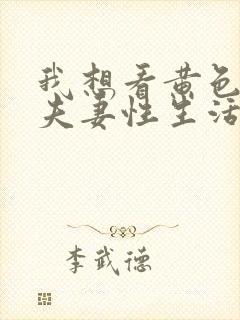 我想看黄色
夫妻性生活
李武德